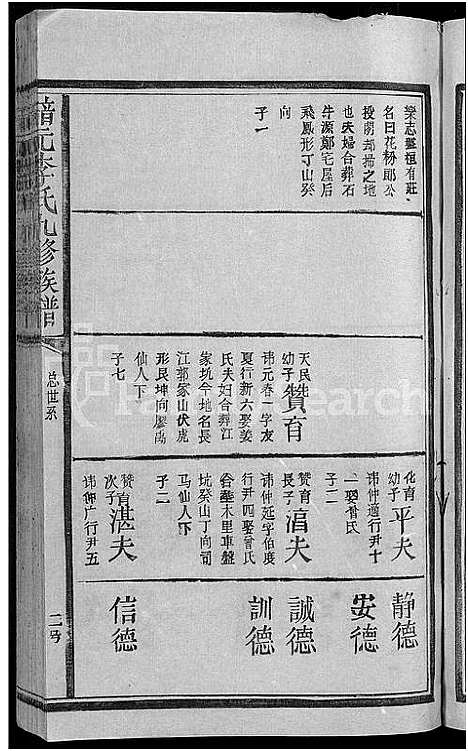 樂志堅祖有莊
名曰花粉郎公
投虜却掃之地
也夫婦合葬石
牛源鄭宅屋后
飛鳳形丁山癸
向
子一
天民
幼子
贊育
諱元春一字友
夏行新六娶姜
氏夫婦合葬江
家坑今地名長
江郭家山伏虎
形艮坤向廖禹
仙人下
子七
化育
幼子
平夫
諱仲適行尹十
一娶曾氏
子二
贊育
長子
湻夫
諱仲延字伯度
行尹四娶曾氏
合葬木里車盤
坑癸山丁向司
馬仙人下
子二
贊育
次子
湛夫
諱仲广行尹五
静德
安德
誠德
訓德
信德
李氏九修族譜
总世系
二四